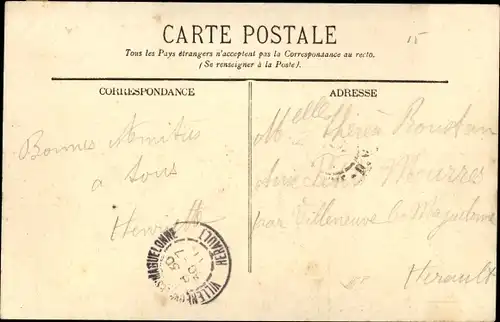 CARTE POSTALE
Tous les Pays étrangers n'acceptent pas la Correspondance au recto.
(Se renseigner à la Poste).
15
CORRESPONDANCE
ADRESSE
Melle Thérèse
Bonnes Amitiés
à tous
Henriette
par Villeneuve les Maguelonne
Hérault
HERAULT